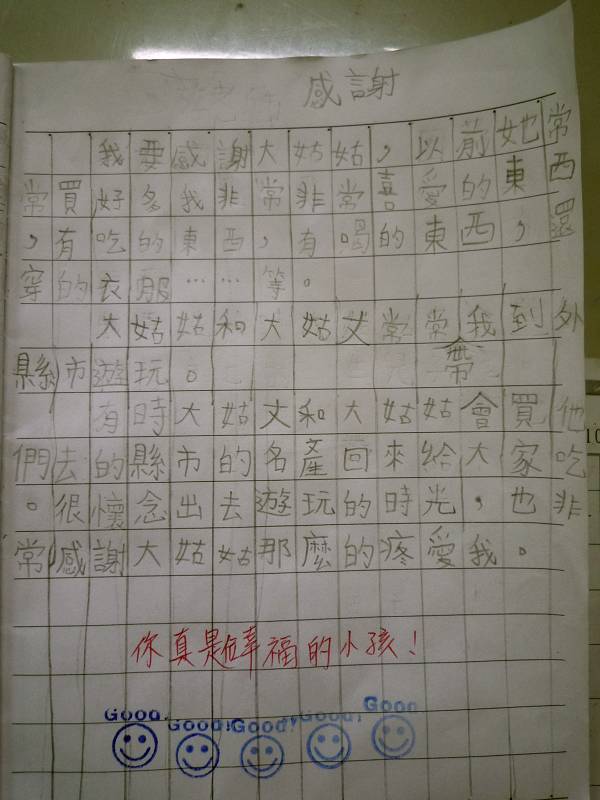 感謝
我要感謝大姑姑，以前她常
常買好多我非常非常喜愛的東西
，有吃的東西，有喝的東西，還
穿的衣服……等。
大姑姑和大姑丈常常我到外
帶
縣市遊玩。
有時大姑丈和大姑姑會買他
們去的縣市的名產回來給大家吃
。很懷念出去遊玩的時光，也非
常感謝大姑姑那麼的疼愛我。
你真是個幸福的小孩！
Good! Good! Good! Good! Good